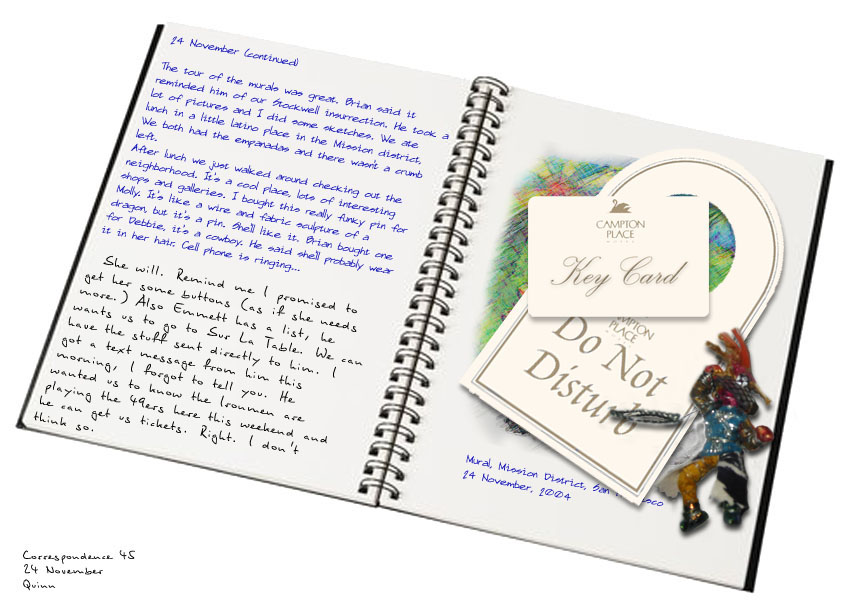 24 November (continued)
The tour of the murals was great. Brian said it
reminded him of our Stockwell insurrection. He took a
lot of pictures and I did some sketches. We ate
lunch in a little latino place in the Mission district,
We both had the empanadas and there wasn't a crumb
left.
After lunch we just walked around checking out the
neighborhood. It's a cool place, lots of interesting
shops and galleries. I bought this really funky pin for
Molly. It's like a wire and fabric sculpture of a
dragon, but it's a pin. She'll like it. Brian bought one
for Debbie, it's a cowboy. He said she'll probably wear
it in her hair. Cell phone is ringing...
She will. Remind me I promised to
get her some buttons (as if she needs
more.) Also Emmett has a list, he
wants us to go to Sur La Table. We can
have the stuff sent directly to him. I
got a text message from him this
morning, I forgot to tell you. He
wanted us to know the Ironmen are
playing the 49ers here this weekend and
he can get us tickets. Right. I don't
think so.
CAMPTON
PLACE
Key Card
CAMPTON
PLACE
Do Not
Disturb
Mural, Mission District, San
24 November, 2004
Correspondence 45
24 November
Quinn